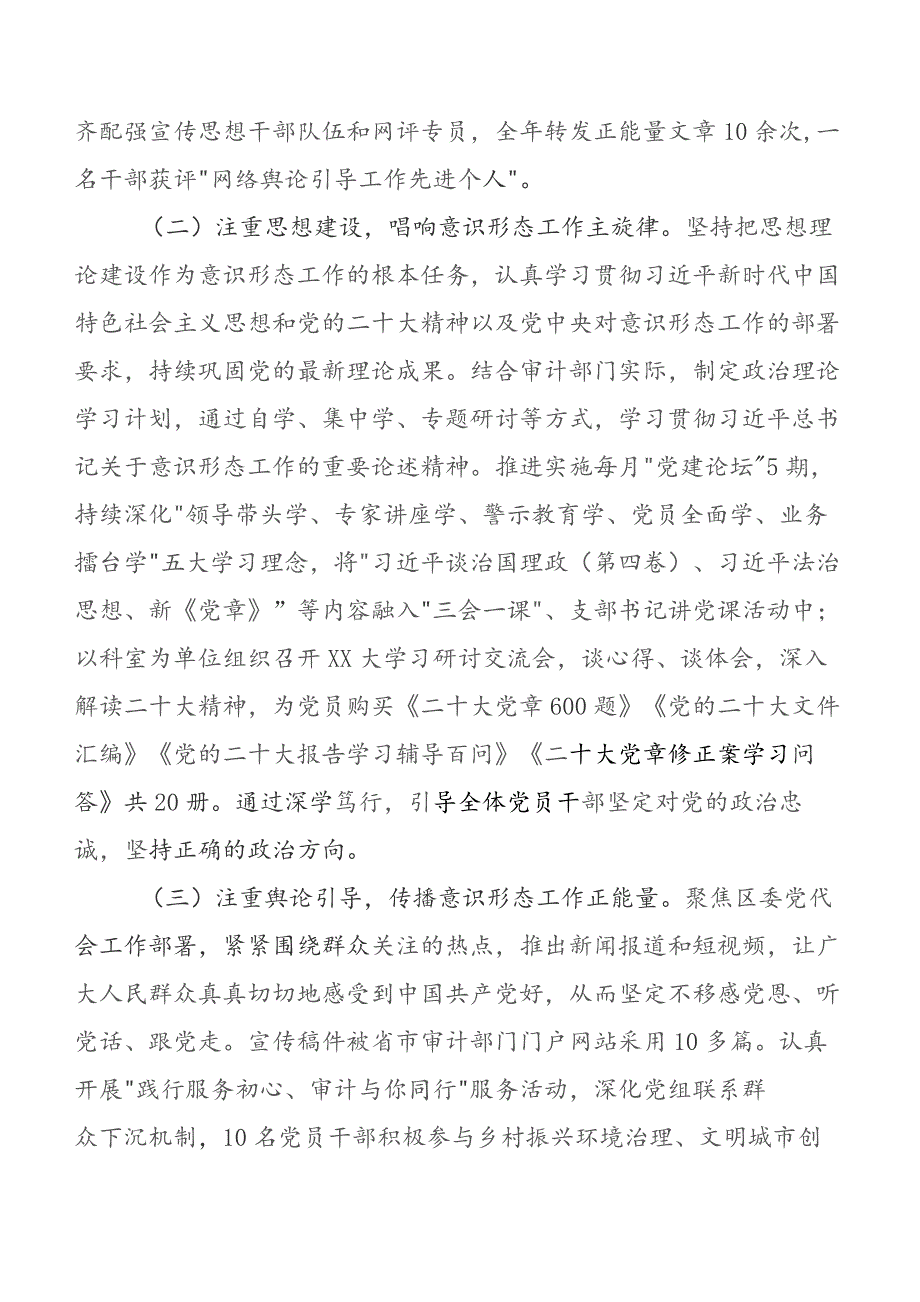 齐配强宣传思想干部队伍和网评专员，全年转发正能量文章10余次,一
名干部获评"网络舆论引导工作先进个人"。
（二）注重思想建设，唱响意识形态工作主旋律。坚持把思想理
论建设作为意识形态工作的根本任务，认真学习贯彻习近平新时代中国
特色社会主义思想和党的二十大精神以及党中央对意识形态工作的部署
要求，持续巩固党的最新理论成果。结合审计部门实际，制定政治理论
学习计划，通过自学、集中学、专题研讨等方式，学习贯彻习近平总书
记关于意识形态工作的重要论述精神。推进实施每月"党建论坛"5期，
持续深化"领导带头学、专家讲座学、警示教育学、党员全面学、业务
擂台学"五大学习理念，将"习近平谈治国理政（第四卷）、习近平法治
思想、新《党章》”等内容融入"三会一课"、支部书记讲党课活动中；
以科室为单位组织召开XX大学习研讨交流会，谈心得、谈体会，深入
解读二十大精神，为党员购买《二十大党章600题》《党的二十大文件
汇编》《党的二十大报告学习辅导百问》《二十大党章修正案学习问
答》共20册。通过深学笃行，引导全体党员干部坚定对党的政治忠
诚，坚持正确的政治方向。
（三）注重舆论引导，传播意识形态工作正能量。聚焦区委党代
会工作部署，紧紧围绕群众关注的热点，推出新闻报道和短视频，让广
大人民群众真真切切地感受到中国共产党好，从而坚定不移感党恩、听
党话、跟党走。宣传稿件被省市审计部门门户网站采用10多篇。认真
开展"践行服务初心、审计与你同行"服务活动，深化党组联系群
众下沉机制，10名党员干部积极参与乡村振兴环境治理、文明城市创